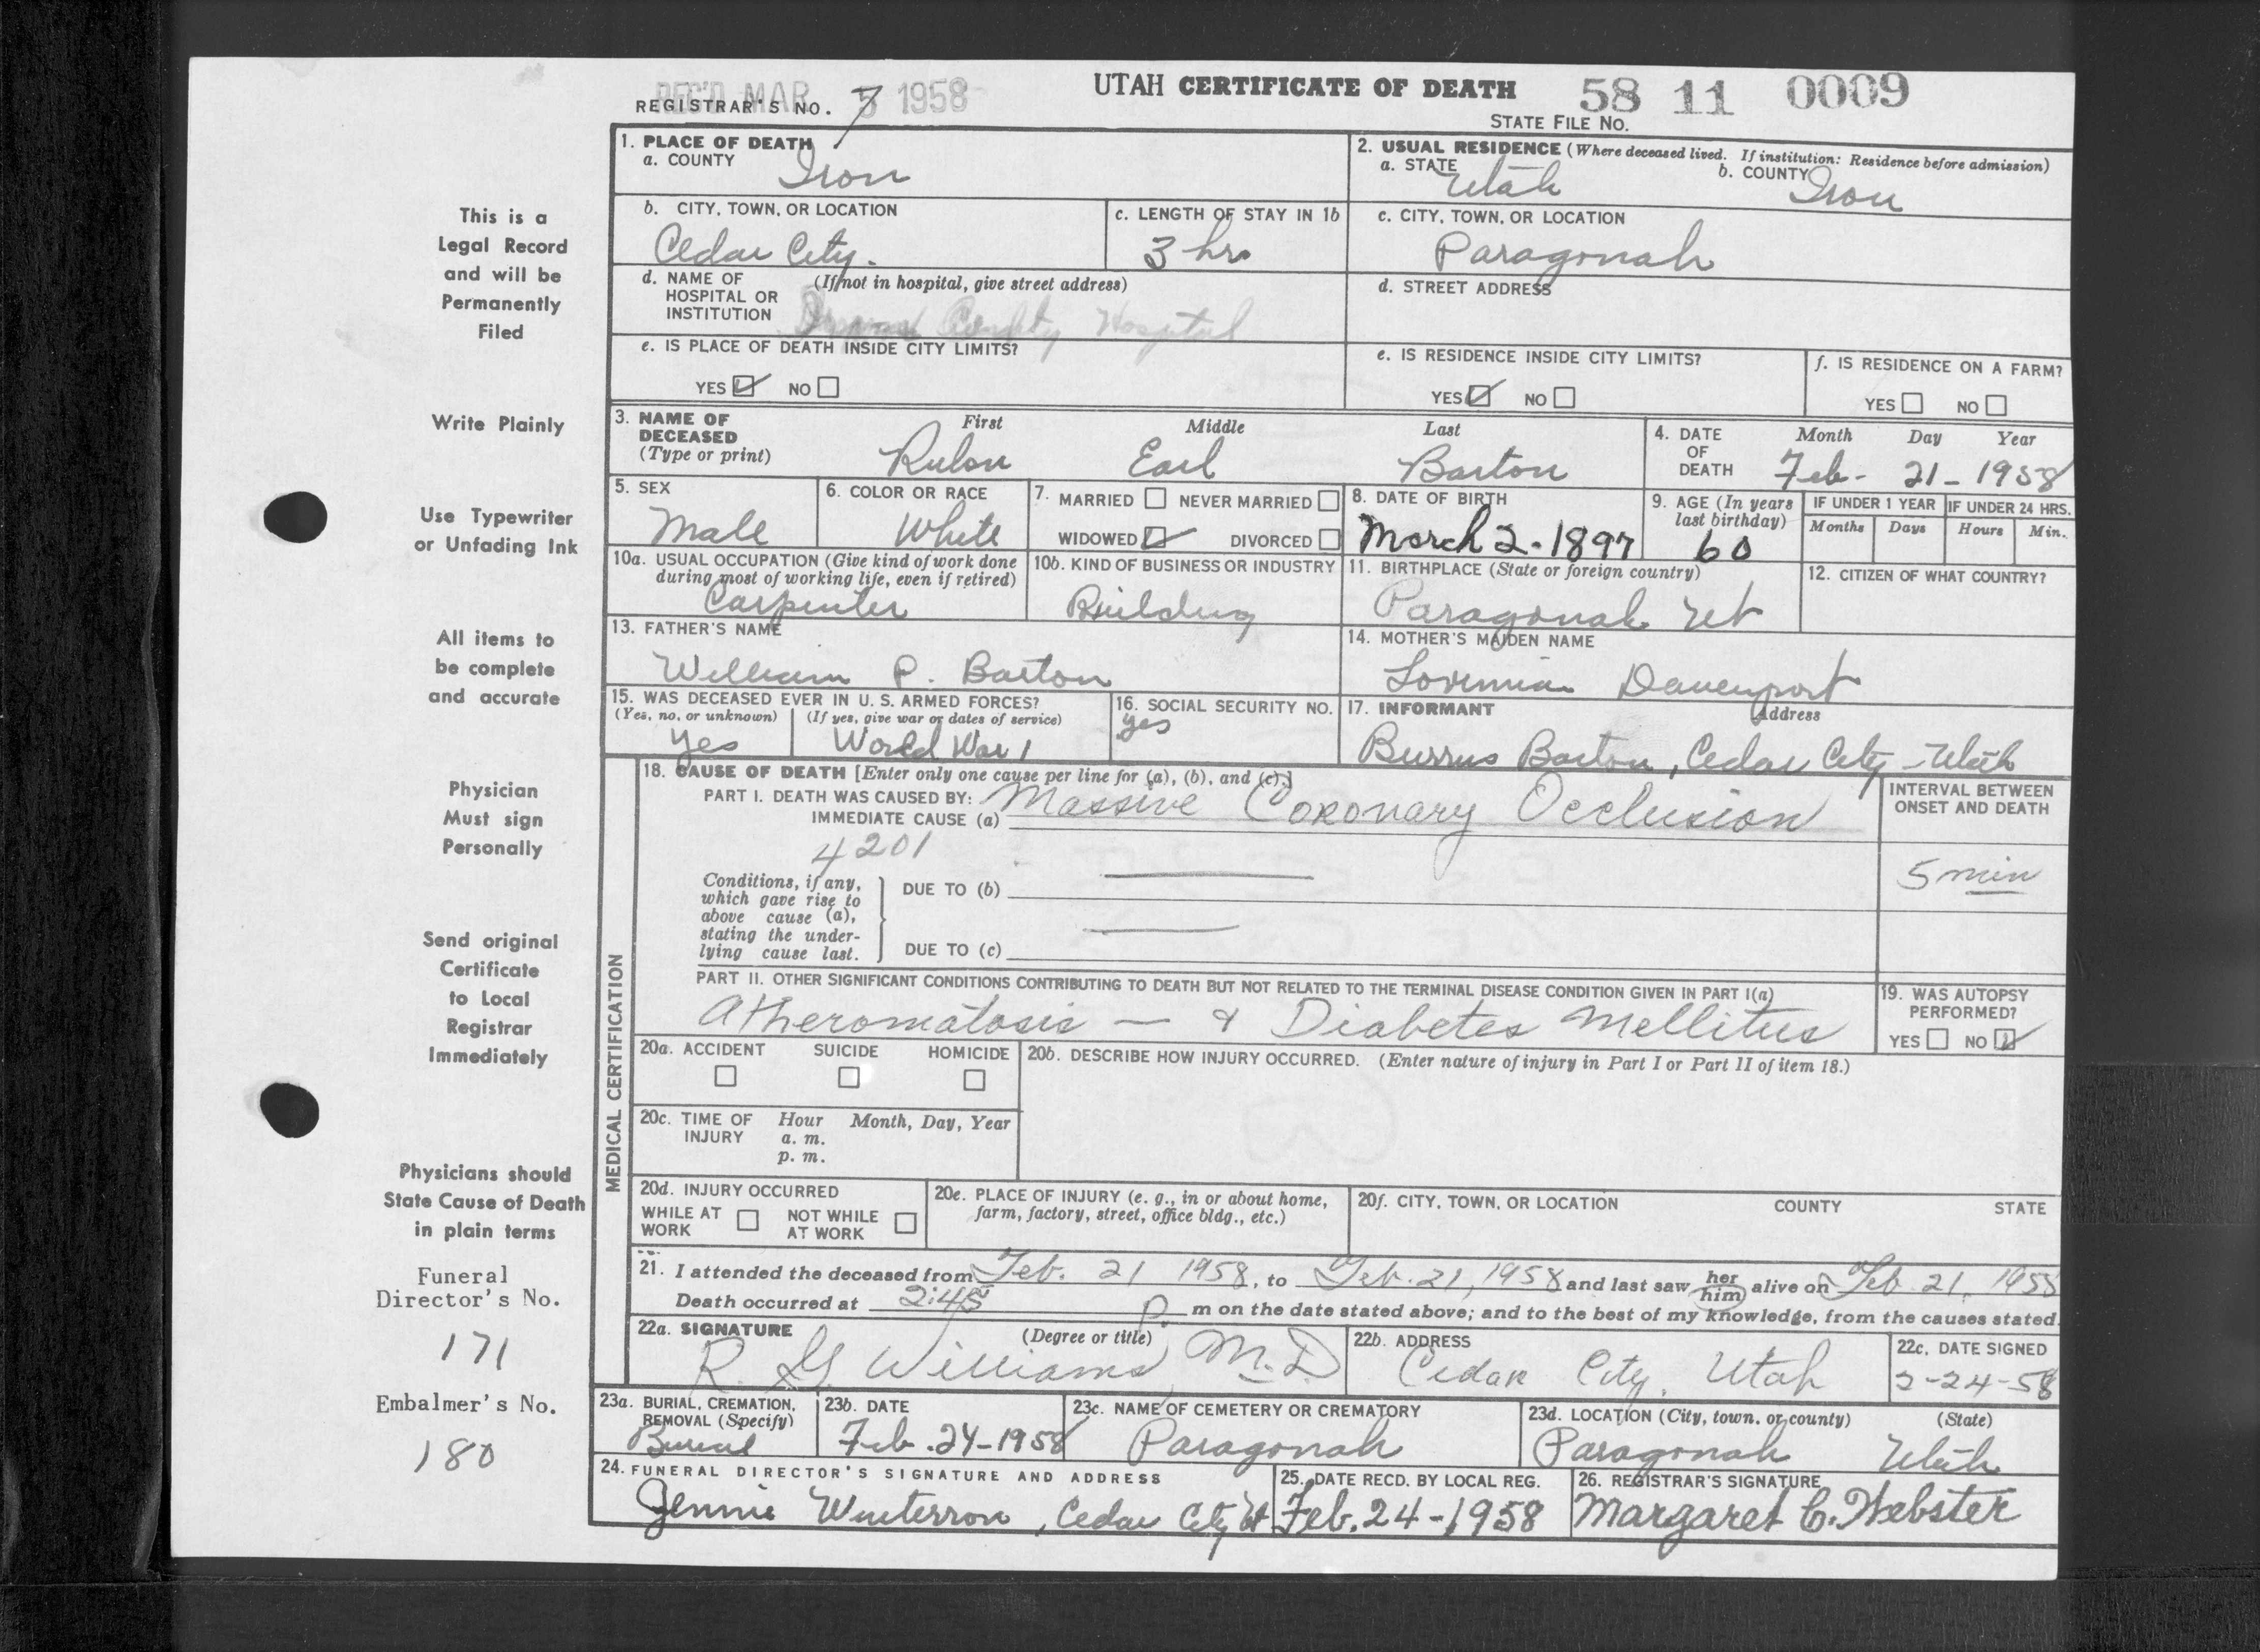 REC'D MAR 5 1958
REGISTRAR'S NO. 7
UTAH CERTIFICATE OF DEATH 58 11 0009
STATE FILE No.
This is a
Legal Record
and will be
Permanently
Filed
Write Plainly
Use Typewriter
or Unfading Ink
All items to
be complete
and accurate
Physician
Must sign
Personally
Send original
Certificate
to Local
Registrar
Immediately
Physicians should
State Cause of Death
in plain terms
Funeral
Director's No.
171
Embalmer's No.
180
1. PLACE OF DEATH
a. COUNTY Iron
2. USUAL RESIDENCE (Where deceased lived. If institution: Residence before admission)
a. STATE Utah b. COUNTY Iron
b. CITY, TOWN, OR LOCATION
Cedar City.
c. LENGTH OF STAY IN 1b
3 hrs
c. CITY, TOWN, OR LOCATION
Paragonah
d. NAME OF (If not in hospital, give street address)
HOSPITAL OR
INSTITUTION County Hospital
d. STREET ADDRESS
e. IS PLACE OF DEATH INSIDE CITY LIMITS?
YES NO
e. IS RESIDENCE INSIDE CITY LIMITS?
YES NO
f. IS RESIDENCE ON A FARM?
YES NO
3. NAME OF First Middle Last
DECEASED
(Type or print) Rulon Earl Barton
4. DATE Month Day Year
OF
DEATH Feb- 21- 1958
5. SEX
Male
6. COLOR OR RACE
White
7. MARRIED NEVER MARRIED
WIDOWED DIVORCED
8. DATE OF BIRTH
March 2-1897
9. AGE (In years
last birthday)
60
IF UNDER 1 YEAR
Months Days
IF UNDER 24 HRS.
Hours Min.
10a. USUAL OCCUPATION (Give kind of work done
during most of working life, even if retired)
Carpenter
10b. KIND OF BUSINESS OR INDUSTRY
Building
11. BIRTHPLACE (State or foreign country)
Paragonah Ut
12. CITIZEN OF WHAT COUNTRY?
13. FATHER'S NAME
William P. Barton
14. MOTHER'S MAIDEN NAME
Davenport
15. WAS DECEASED EVER IN U. S. ARMED FORCES?
(Yes, no, or unknown) (If yes, give war or dates of service)
Yes World War 1
16. SOCIAL SECURITY NO.
yes
17. INFORMANT Address
Burrus Barton, Cedar City - Utah
MEDICAL CERTIFICATION
18. CAUSE OF DEATH [Enter only one cause per line for (a), (b), and (c).]
PART I. DEATH WAS CAUSED BY:
IMMEDIATE CAUSE (a) Massive Coronary Occlusion
INTERVAL BETWEEN
ONSET AND DEATH
5 min
4201
Conditions, if any,
which gave rise to
above cause (a),
stating the under-
lying cause last.
DUE TO (b)
DUE TO (c)
PART II. OTHER SIGNIFICANT CONDITIONS CONTRIBUTING TO DEATH BUT NOT RELATED TO THE TERMINAL DISEASE CONDITION GIVEN IN PART I(a)
Atheromatosis — & Diabetes Mellitus
19. WAS AUTOPSY
PERFORMED?
YES NO
20a. ACCIDENT SUICIDE HOMICIDE
20b. DESCRIBE HOW INJURY OCCURRED. (Enter nature of injury in Part I or Part II of item 18.)
20c. TIME OF Hour Month, Day, Year
INJURY a. m.
p. m.
20d. INJURY OCCURRED
WHILE AT NOT WHILE
WORK AT WORK
20e. PLACE OF INJURY (e. g., in or about home,
farm, factory, street, office bldg., etc.)
20f. CITY, TOWN, OR LOCATION COUNTY STATE
21. I attended the deceased from Feb. 21 1958, to Feb. 21, 1958 and last saw her him alive on Feb 21, 1958
Death occurred at 2:45 P. m on the date stated above; and to the best of my knowledge, from the causes stated.
22a. SIGNATURE (Degree or title)
R. G. Williams, M.D.
22b. ADDRESS
Cedar City, Utah
22c. DATE SIGNED
2-24-58
23a. BURIAL, CREMATION,
REMOVAL (Specify)
Burial
23b. DATE
Feb. 24-1958
23c. NAME OF CEMETERY OR CREMATORY
Paragonah
23d. LOCATION (City, town, or county) (State)
Paragonah Utah
24. FUNERAL DIRECTOR'S SIGNATURE AND ADDRESS
Jennie , Cedar City Ut
25. DATE RECD. BY LOCAL REG.
Feb. 24-1958
26. REGISTRAR'S SIGNATURE
Margaret C. Webster